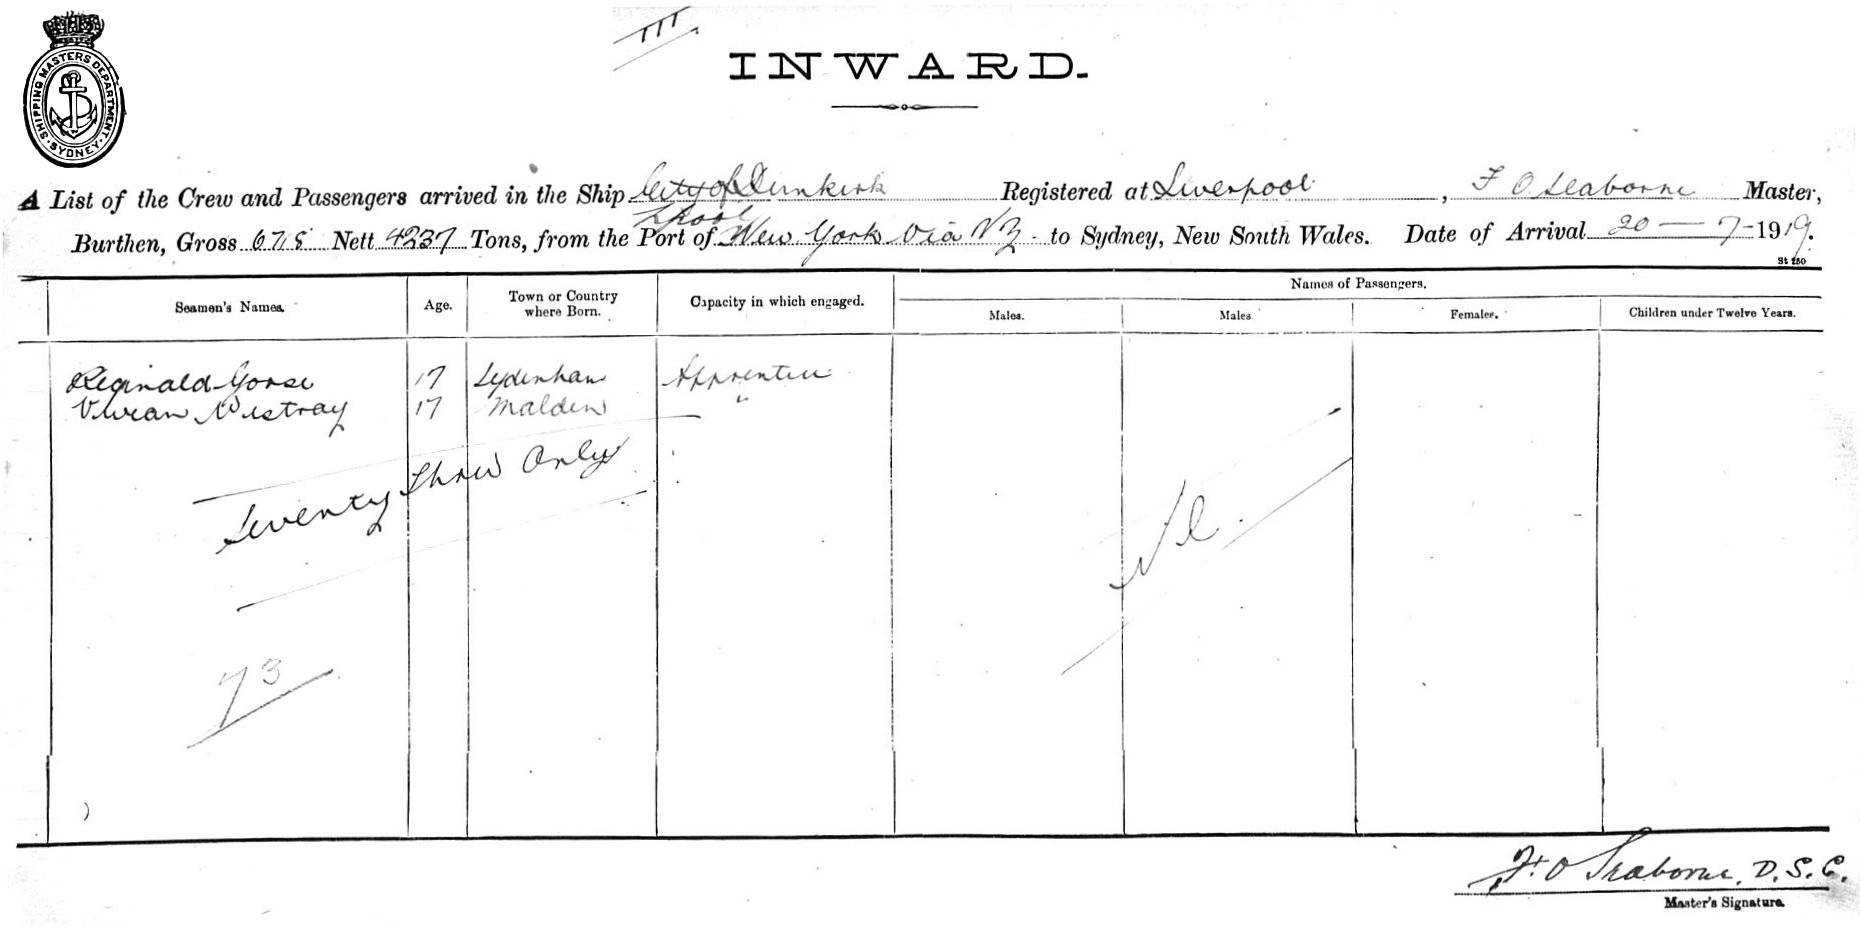 III
INWARD.
SHIPPING MASTERS DEPARTMENT · SYDNEY ·
A List of the Crew and Passengers arrived in the Ship City of Dunkirk Registered at Liverpool, F O Seaborne Master,
L'pool
Burthen, Gross Nett 4237 Tons, from the Port of New York via NZ to Sydney, New South Wales. Date of Arrival 20 - 7 - 1919.
St 250
Seamen's Names. Age. Town or Country where Born. Capacity in which engaged. Names of Passengers.
Males. Males. Females. Children under Twelve Years.
Reginald 17 Sydenham Apprentice
Vivian Westray 17 Malden "
Seventy Three Only
Nil
73
F. O Seaborne, D.S.C.
Master's Signature.